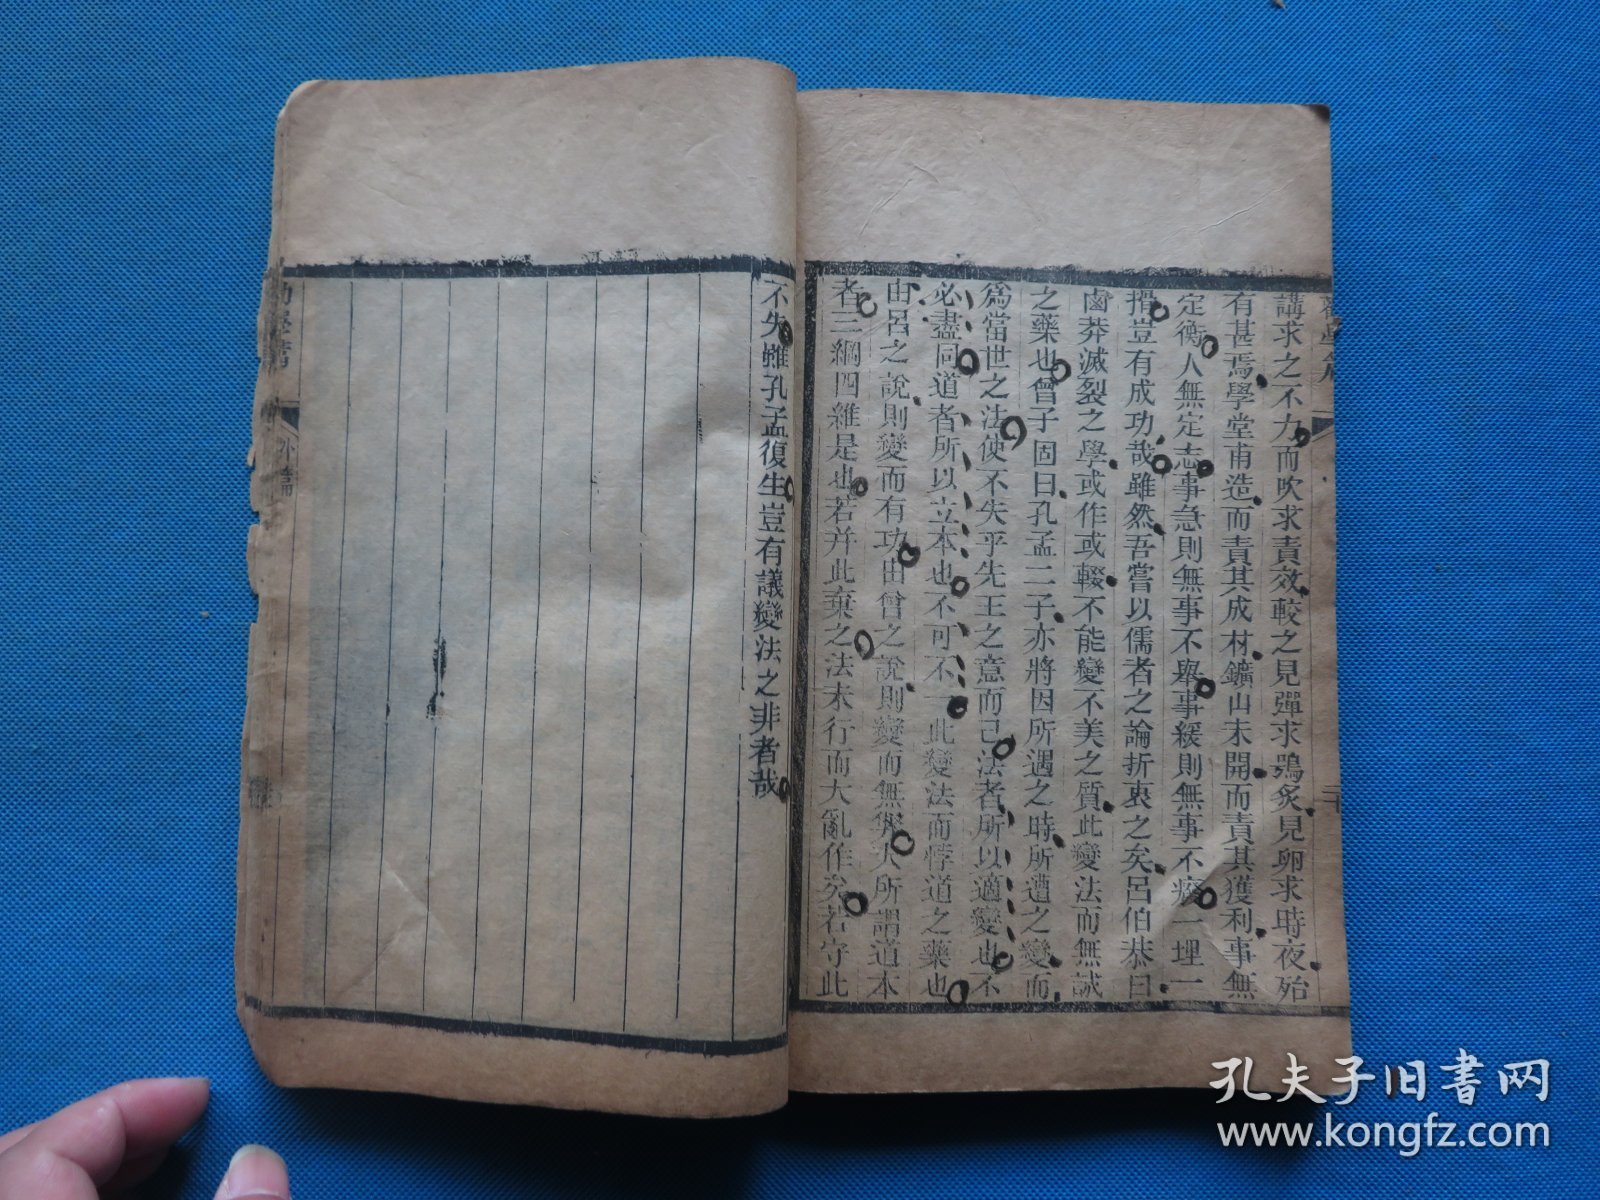 講求之不力而吹求責效較之見彈求鴞炙見卵求時夜殆
有甚焉學堂甫造而責其成材鑛山未開而責其獲利事無
定衡人無定志事急則無事不舉事緩則無事不廢一埋一
搰豈有成功哉雖然吾嘗以儒者之論折衷之矣呂伯恭曰
鹵莽滅裂之學或作或輟不能變不美之質此變法而無誠
之藥也曾子固曰孔孟二子亦將因所遇之時所遭之變而
爲當世之法使不失乎先王之意而已法者所以適變也不
必盡同道者所以立本也不可不一此變法而悖道之藥也
由呂之說則變而有功由曾之說則變而無弊夫所謂道本
者三綱四維是也若并此棄之法未行而大亂作矣若守此
不失雖孔孟復生豈有議變法之非者哉
外篇
孔夫子旧書网
www.kongfz.com